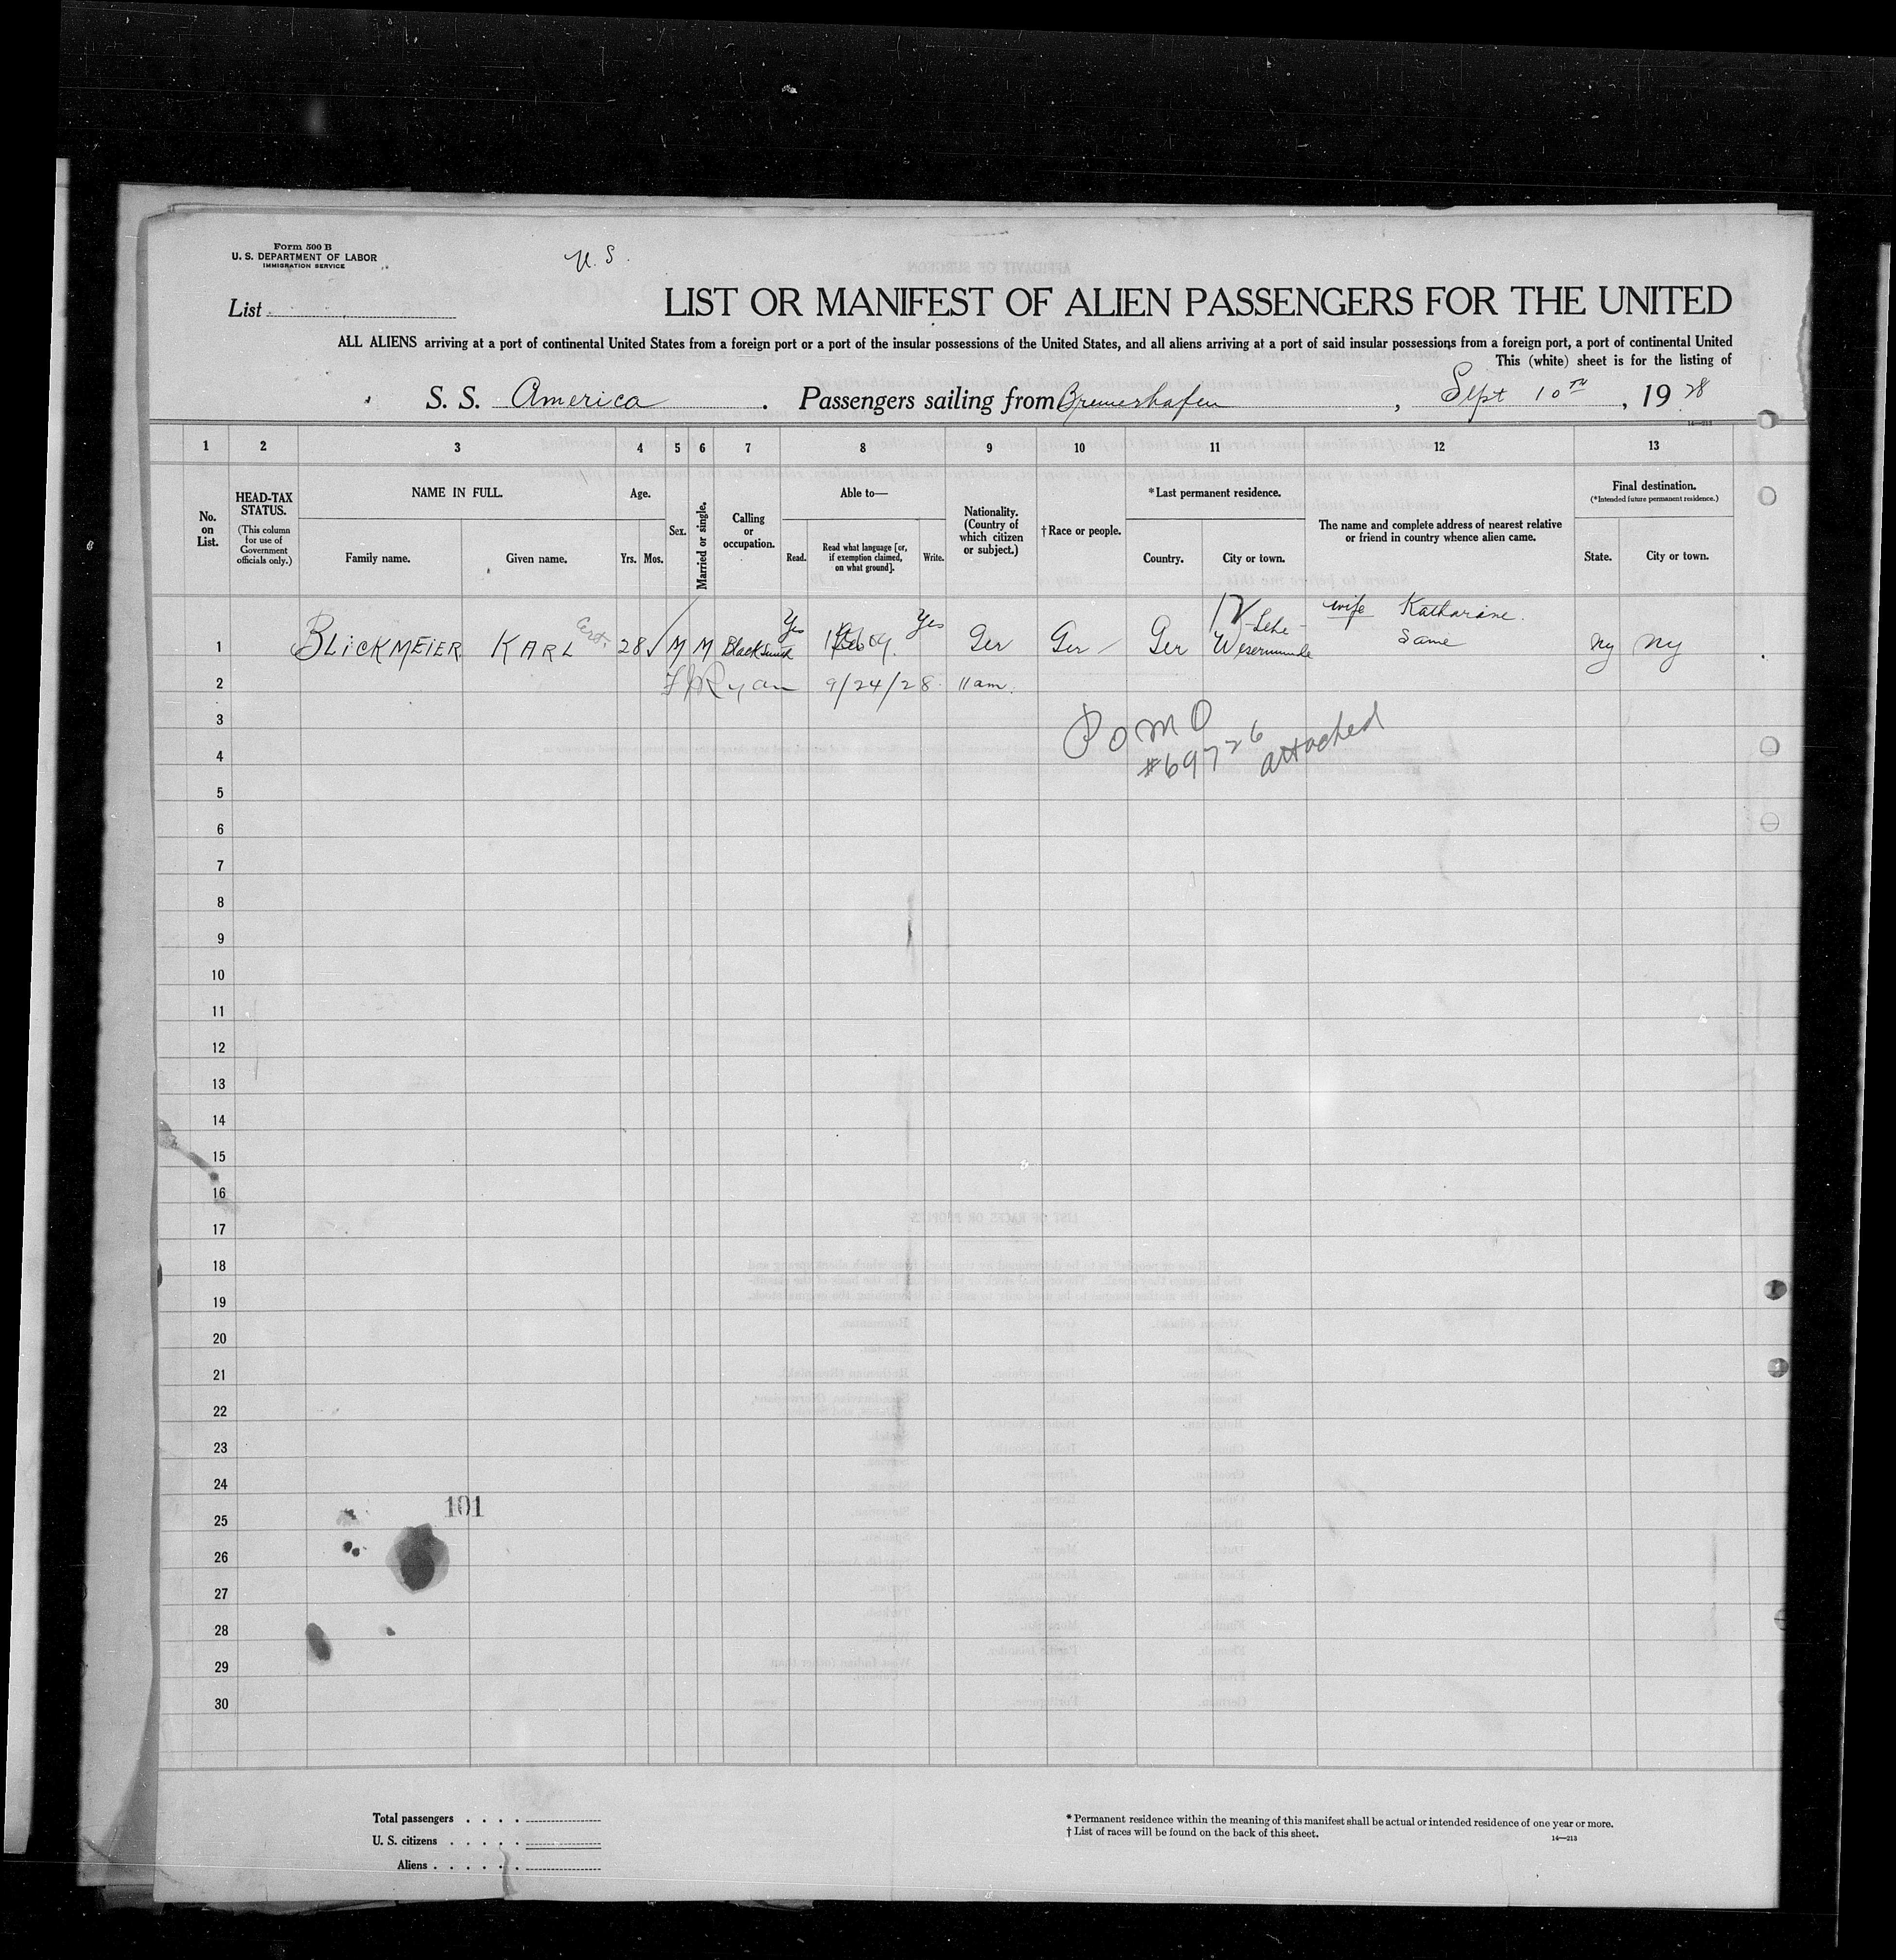 Form 500 B
U. S. DEPARTMENT OF LABOR
IMMIGRATION SERVICE
U. S.
List
LIST OR MANIFEST OF ALIEN PASSENGERS FOR THE UNITED
ALL ALIENS arriving at a port of continental United States from a foreign port or a port of the insular possessions of the United States, and all aliens arriving at a port of said insular possessions from a foreign port, a port of continental United
This (white) sheet is for the listing of
S. S. America. Passengers sailing from Bremeshafen, Sept 10TH, 1928
14—213
1 2 3 4 5 6 7 8 9 10 11 12 13
No. on List.
HEAD-TAX STATUS.
(This column for use of Government officials only.)
NAME IN FULL.
Family name. Given name.
Age.
Yrs. Mos.
Sex.
Married or single.
Calling or occupation.
Able to—
Read. Read what language [or, if exemption claimed, on what ground]. Write.
Nationality. (Country of which citizen or subject.)
†Race or people.
*Last permanent residence.
Country. City or town.
The name and complete address of nearest relative or friend in country whence alien came.
Final destination.
(*Intended future permanent residence.)
State. City or town.
Yes Yes Lehe - wife Katharine.
1 BLiCKMEiER KARL 28 M M Blacksmith Ger Ger Ger Wesermunde Same Ny Ny
2 Ryan 9/24/28 11am.
3
4
#69726 attached
5
6
7
8
9
10
11
12
13
14
15
16
17
18
19
20
21
22
23
24
101
25
26
27
28
29
30
Total passengers . . . .
U. S. citizens . . . . .
Aliens . . . . . .
* Permanent residence within the meaning of this manifest shall be actual or intended residence of one year or more.
† List of races will be found on the back of this sheet.
14—213